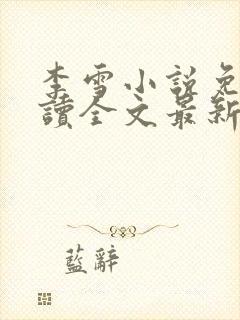 李雪小說免
讀全文最新
藍辭